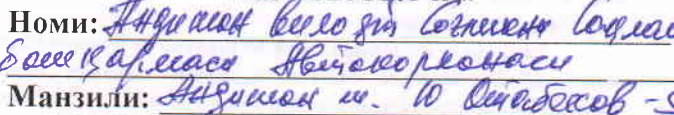 Номи: Андижон вилоят Согликни Саклаш
Бошқармаси Автокорхонаси
Манзили: Андижон ш. Ю Отабеков -